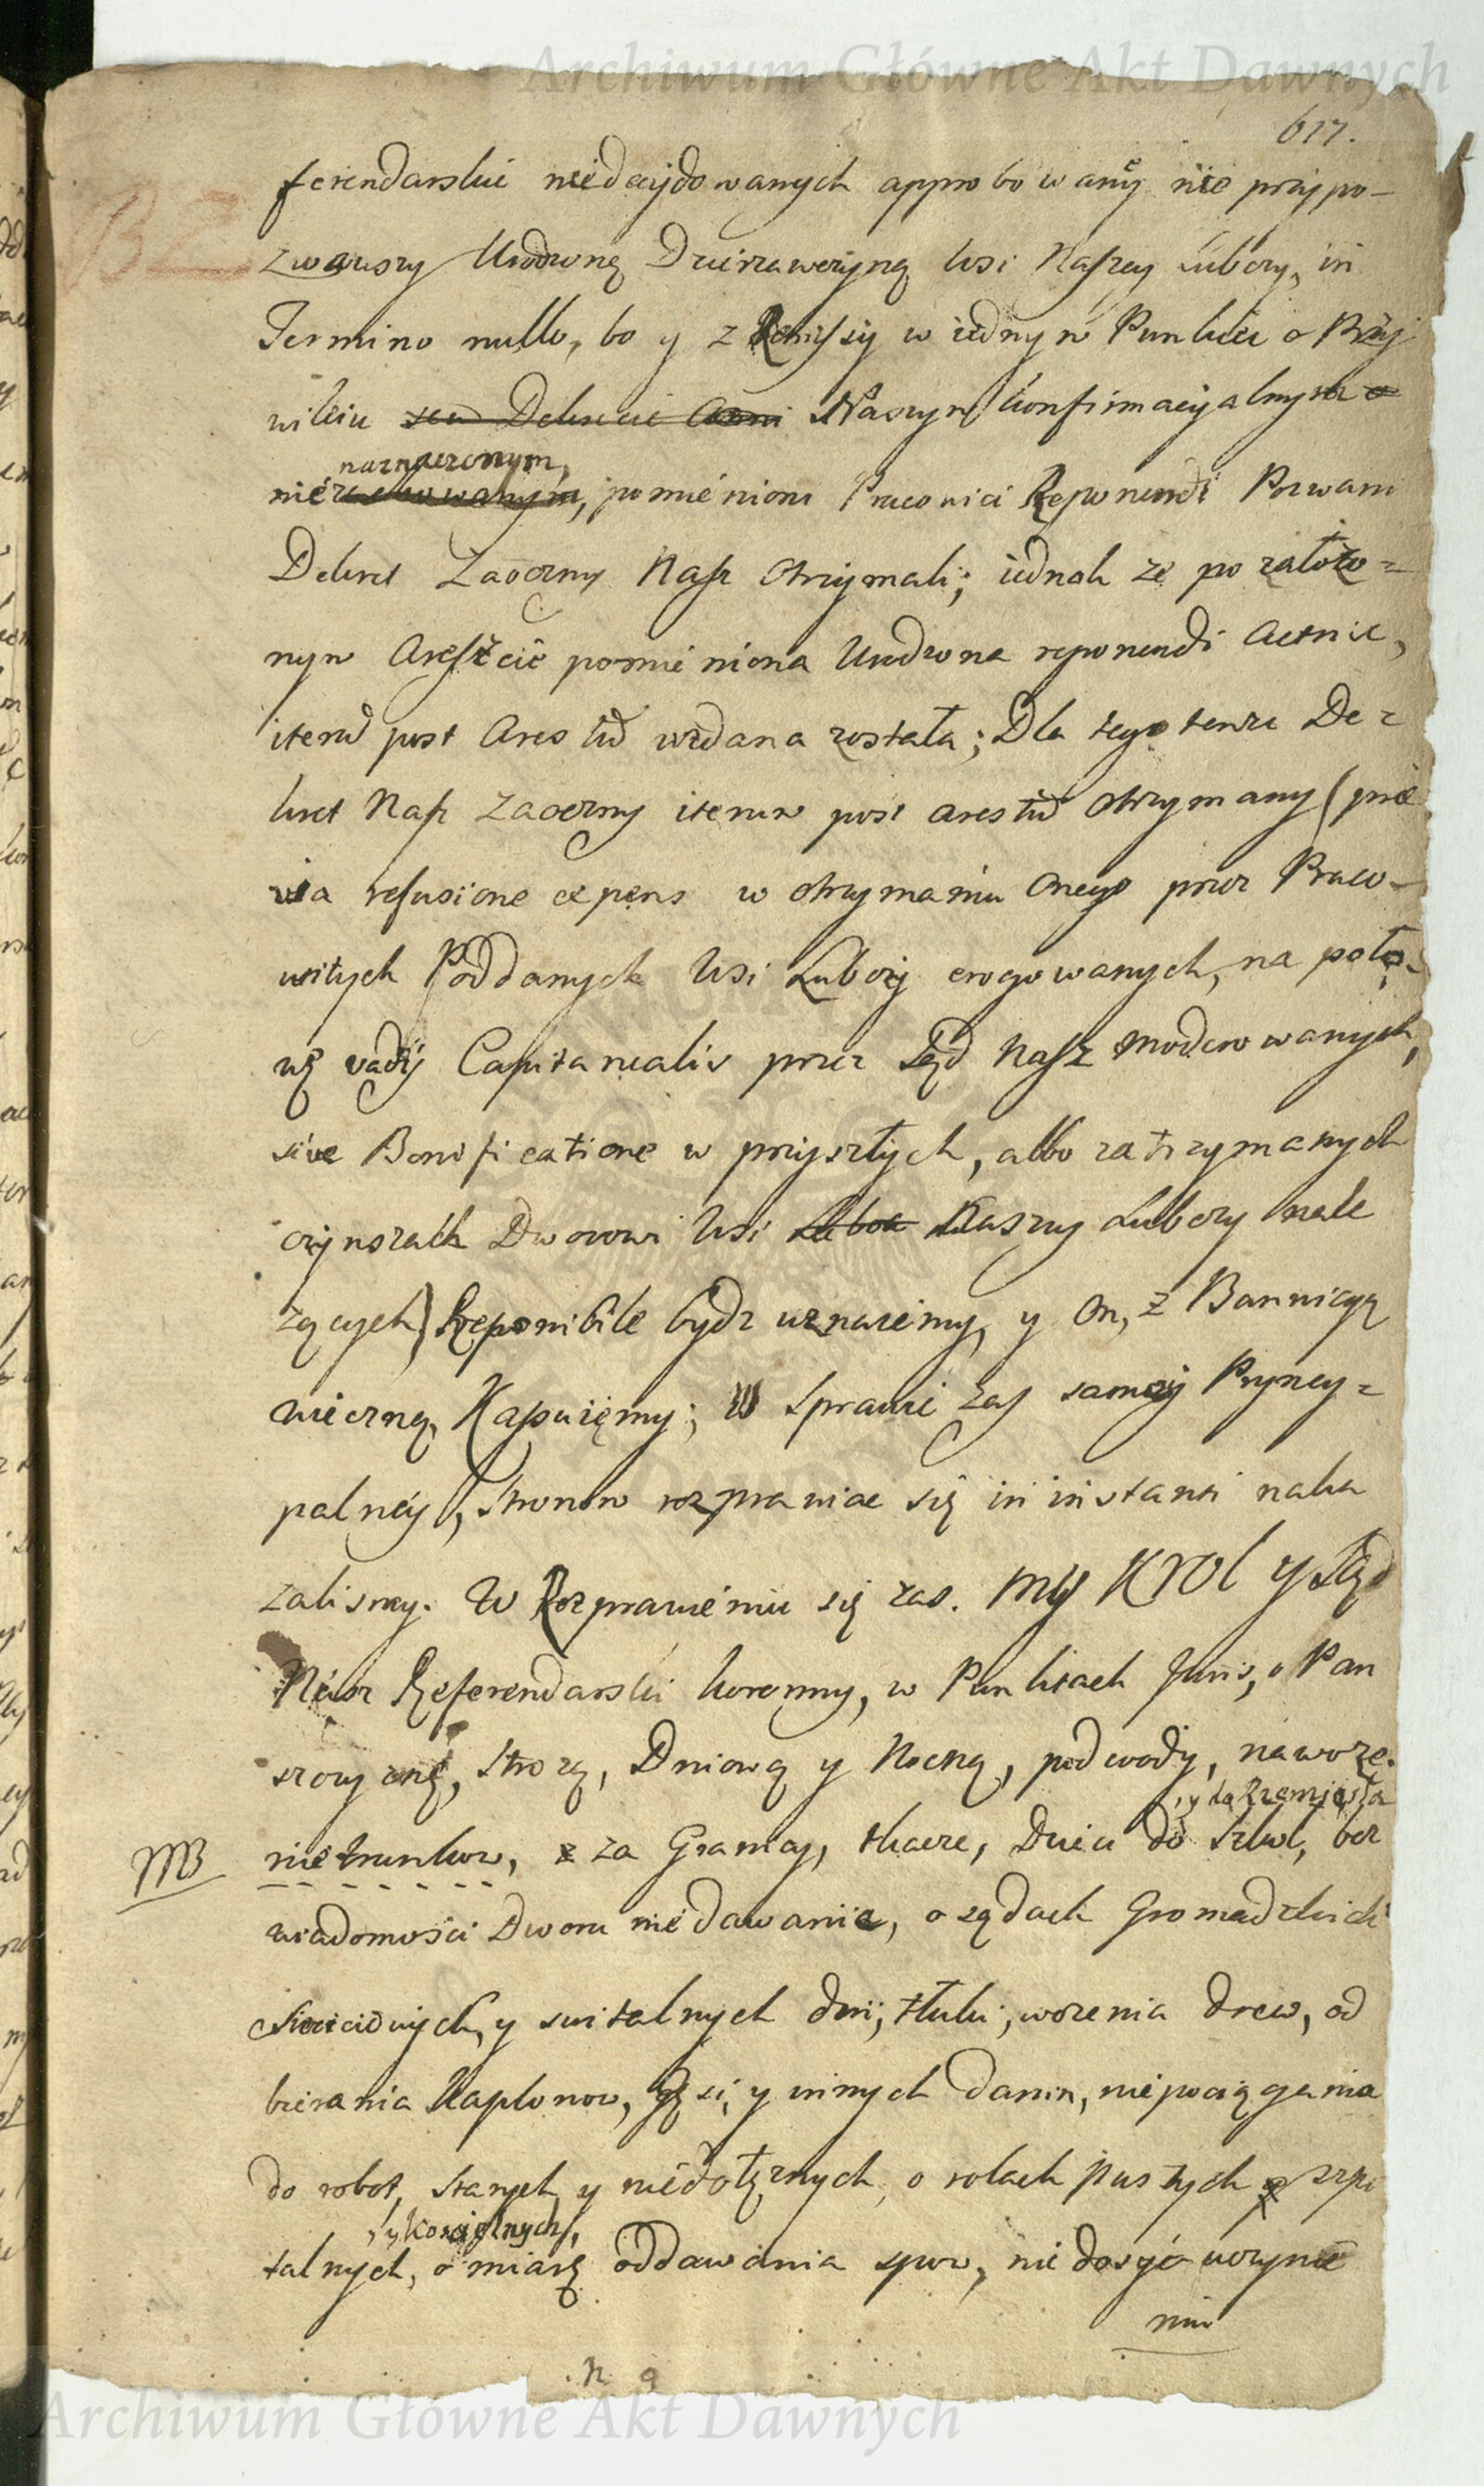 Archiwum Główne Akt Dawnych
617.
ferendarskie niedecydowanych approbowany nie przypo-
zwawszy Urodzoną Dzierzawczyną Wsi Naszey Luborzy, in
Termino nullo, bo y z Remissy w iednym Punkcie o Przy
wileiu seu Dekrecie Naszym konfirmacyalnym
naznaczonym,
nie, pomienioni Pracowici Reponendi Pozwani
Dekret Zaoczny Nasz otrzymali; iednak ze po zalozo=
nym Areszcie pomieniona Urodzona reponendi Actnie,
iterum post Arestum wzdana została; Dla tego tenze De=
kret Nasz Zaoczny iterum post arestum otrzymany (prae
via refusione expens w otrzymaniu onego przez Praco-
witych Poddanych Wsi Luborzy erogowanych, na poło-
wę vadij Capitanealis przez Sąd Nasz moderowanych,
sive Bonificatione w przyszłych, albo zatrzymanych
czynszach Dworowi Wsi Naszey Luborzy nale
zących) Reponibile bydz uznaiemy, y on, z Bannicyą
wieczną, Kassuięmy; W Sprawie zas samey Pryncy=
palney, Stronom rozprawiac się in instanti naka
zalismy. W Rozprawieniu się zas. My KROL y Sąd
Nasz Referendarski koronny, w Punktach Juris, o Pan
szczyznę, Strozą, Dniową y Nocną, podwody, nawoze.
, y do Rzemiosła
nie trunkow, z za Granicy, tkacze, Dzieci do Szkol, bez
NB
wiadomosci Dworu nie dawanie, o sądach Gromadzkich
y suitalnych dni, tłuki, wozenia drew, od
bierania Kapłonow, Gęsi, y innych danin, niepociągania
do robot, starych y niedołęznych, o rolach pustych szpi
, y Kosciolnych,
talnych, o miarę oddawania spow, nie dosyć uczynie
niu
N 9
Archiwum Główne Akt Dawnych